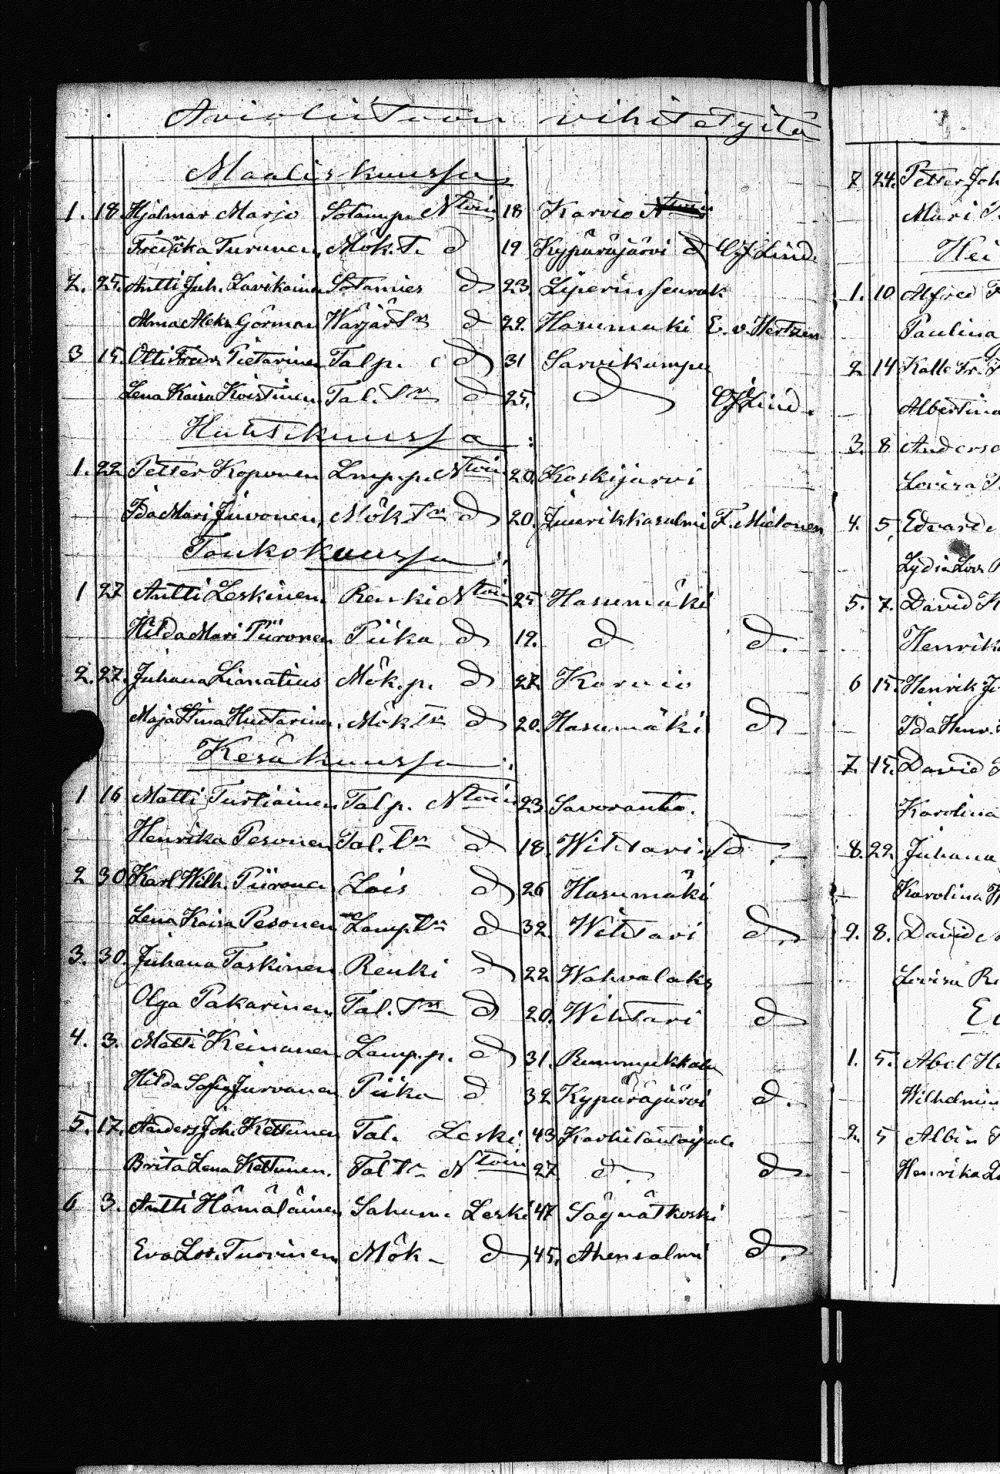 Avioliittoon vihitetyitä
Maaliskuussa
1. 18. Hjalmar Marjo Sotamp. Ntoin 18 Karvio
Fredrika Turunen Mök. T. d 19 Kypäräjärvi d Lind.
2. 25. Antti Juh. Lavikainen Sotamies d 23 Liperin seurak
Alma Aleks. Görman d 22. Hasumäki E. v. Hertzen
3 15. Otti Fredr. Pietarinen Talp. d 31 Sarvikumpu
Lena Kaisa Koistinen Tal. Tr d 25. d Lind.
Huhtikuussa :
1. 22 Petter Koponen Lmp.p. Ntoin 20, Koskijärvi
Ida Mari Juvonen, Mök. Tr d 20. Juurikkasalmi F. Mietonen
Toukokuussa :
1 27 Antti Leskinen Renki Ntoin 25 Hasumäki
Hilda Mari Piironen Piika d 19. d d.
2. 27. Juhana Lignatius Mök. p. d 27 Karvio
Maja Stina Huttarinen, Mök Tr d 20. Hasumäki d
Kesäkuussa :
1 16 Matti Turtiainen Talp. Ntoin 23. Savoranta.
Henrika Pesonen Tal. Tr d 18. Wihtari d
2 30 Karl Wilh. Piironen Lois d 26 Hasumäki
Lena Kaisa Pesonen Lamp Tr d 32. Wihtari d.
3. 30. Juhana Taskinen Renki d 22 Wahvalaks
Olga Pakarinen Tal. Tr d 20. Wihtari d
4. 3. Matti Keinanen Lamp.p. d 31. Rummukkala
Hilda Sofia Jurvanen Piika d 32 Kypäräjärvi d.
5. 17. Anders Joh. Kettunen Tal. Leski 43
Brita Lena Kettunen. Tal Tr Ntoin 27 d. d.
6 3. Antti Hämäläinen Leski 47 Säynätkoski
Eva Lov. Turunen Mök d 45. Ahensalmi d.
7 24. Petter Joh
Mari
Hei
1. 10 Alfred
Paulina
2 14 Kalle Fr.
Albertina
3. 8 Anders
Lovisa
4. 5, Edvard
Lydia Lov.
5. 7. David K
Henrika
6 15. Henrik J
Ida Henr.
7. 15. David
Karolina
8. 22. Juhana
Karolina
9. 8. David
Lovisa
1. 5. Abel
Wilhelmi
2. 5 Albin
Henrika